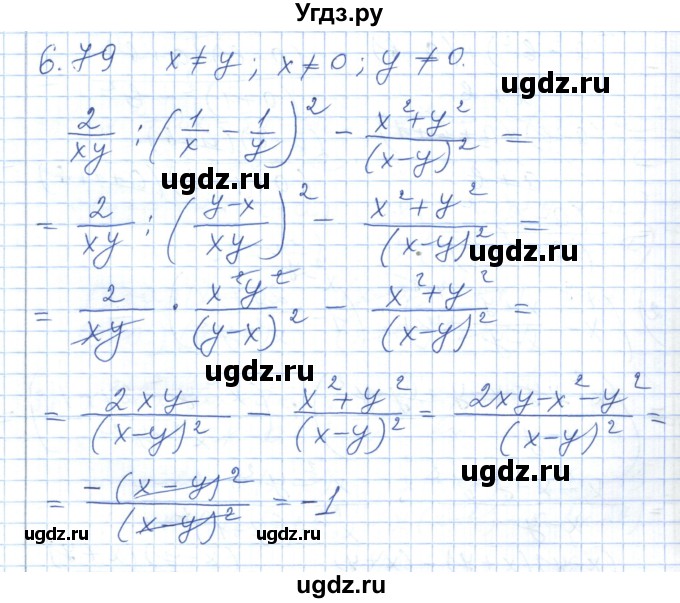 Угдз.ру
6.79 x ≠ y; x ≠ 0; y ≠ 0.
2/xy : (1/x − 1/y)² − (x²+y²)/(x−y)² =
ugdz.ru
= 2/xy : ((y−x)/xy)² − (x²+y²)/(x−y)² =
ugdz.ru
= 2/xy · x²y²/(y−x)² − (x²+y²)/(x−y)² =
ugdz.ru
= 2xy/(x−y)² − (x²+y²)/(x−y)² = (2xy−x²−y²)/(x−y)² =
ugdz.ru
= −(x−y)²/(x−y)² = −1
ugdz.ru ugdz.ru
ugdz.ru